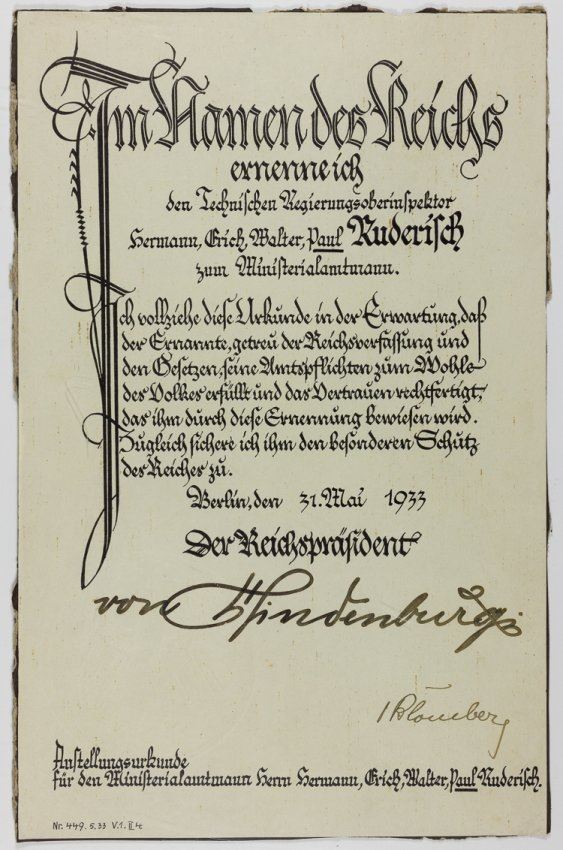 Im Namen des Reichs
ernenne ich
den Technischen Regierungsoberinspektor
Hermann, Erich, Walter, Paul Ruderisch
zum Ministerialamtmann.
Ich vollziehe diese Urkunde in der Erwartung, daß
der Ernannte, getreu der Reichsverfassung und
den Gesetzen, seine Amtspflichten zum Wohle
des Volkes erfüllt und das Vertrauen rechtfertigt,
das ihm durch diese Ernennung bewiesen wird.
Zugleich sichere ich ihm den besonderen Schutz
des Reiches zu.
Berlin, den 31. Mai 1933
Der Reichspräsident
von Hindenburg
v Blomberg
Anstellungsurkunde
für den Ministerialamtmann Herrn Hermann, Erich, Walter, Paul Ruderisch.
Nr. 449. 5. 33 V.1. II 4